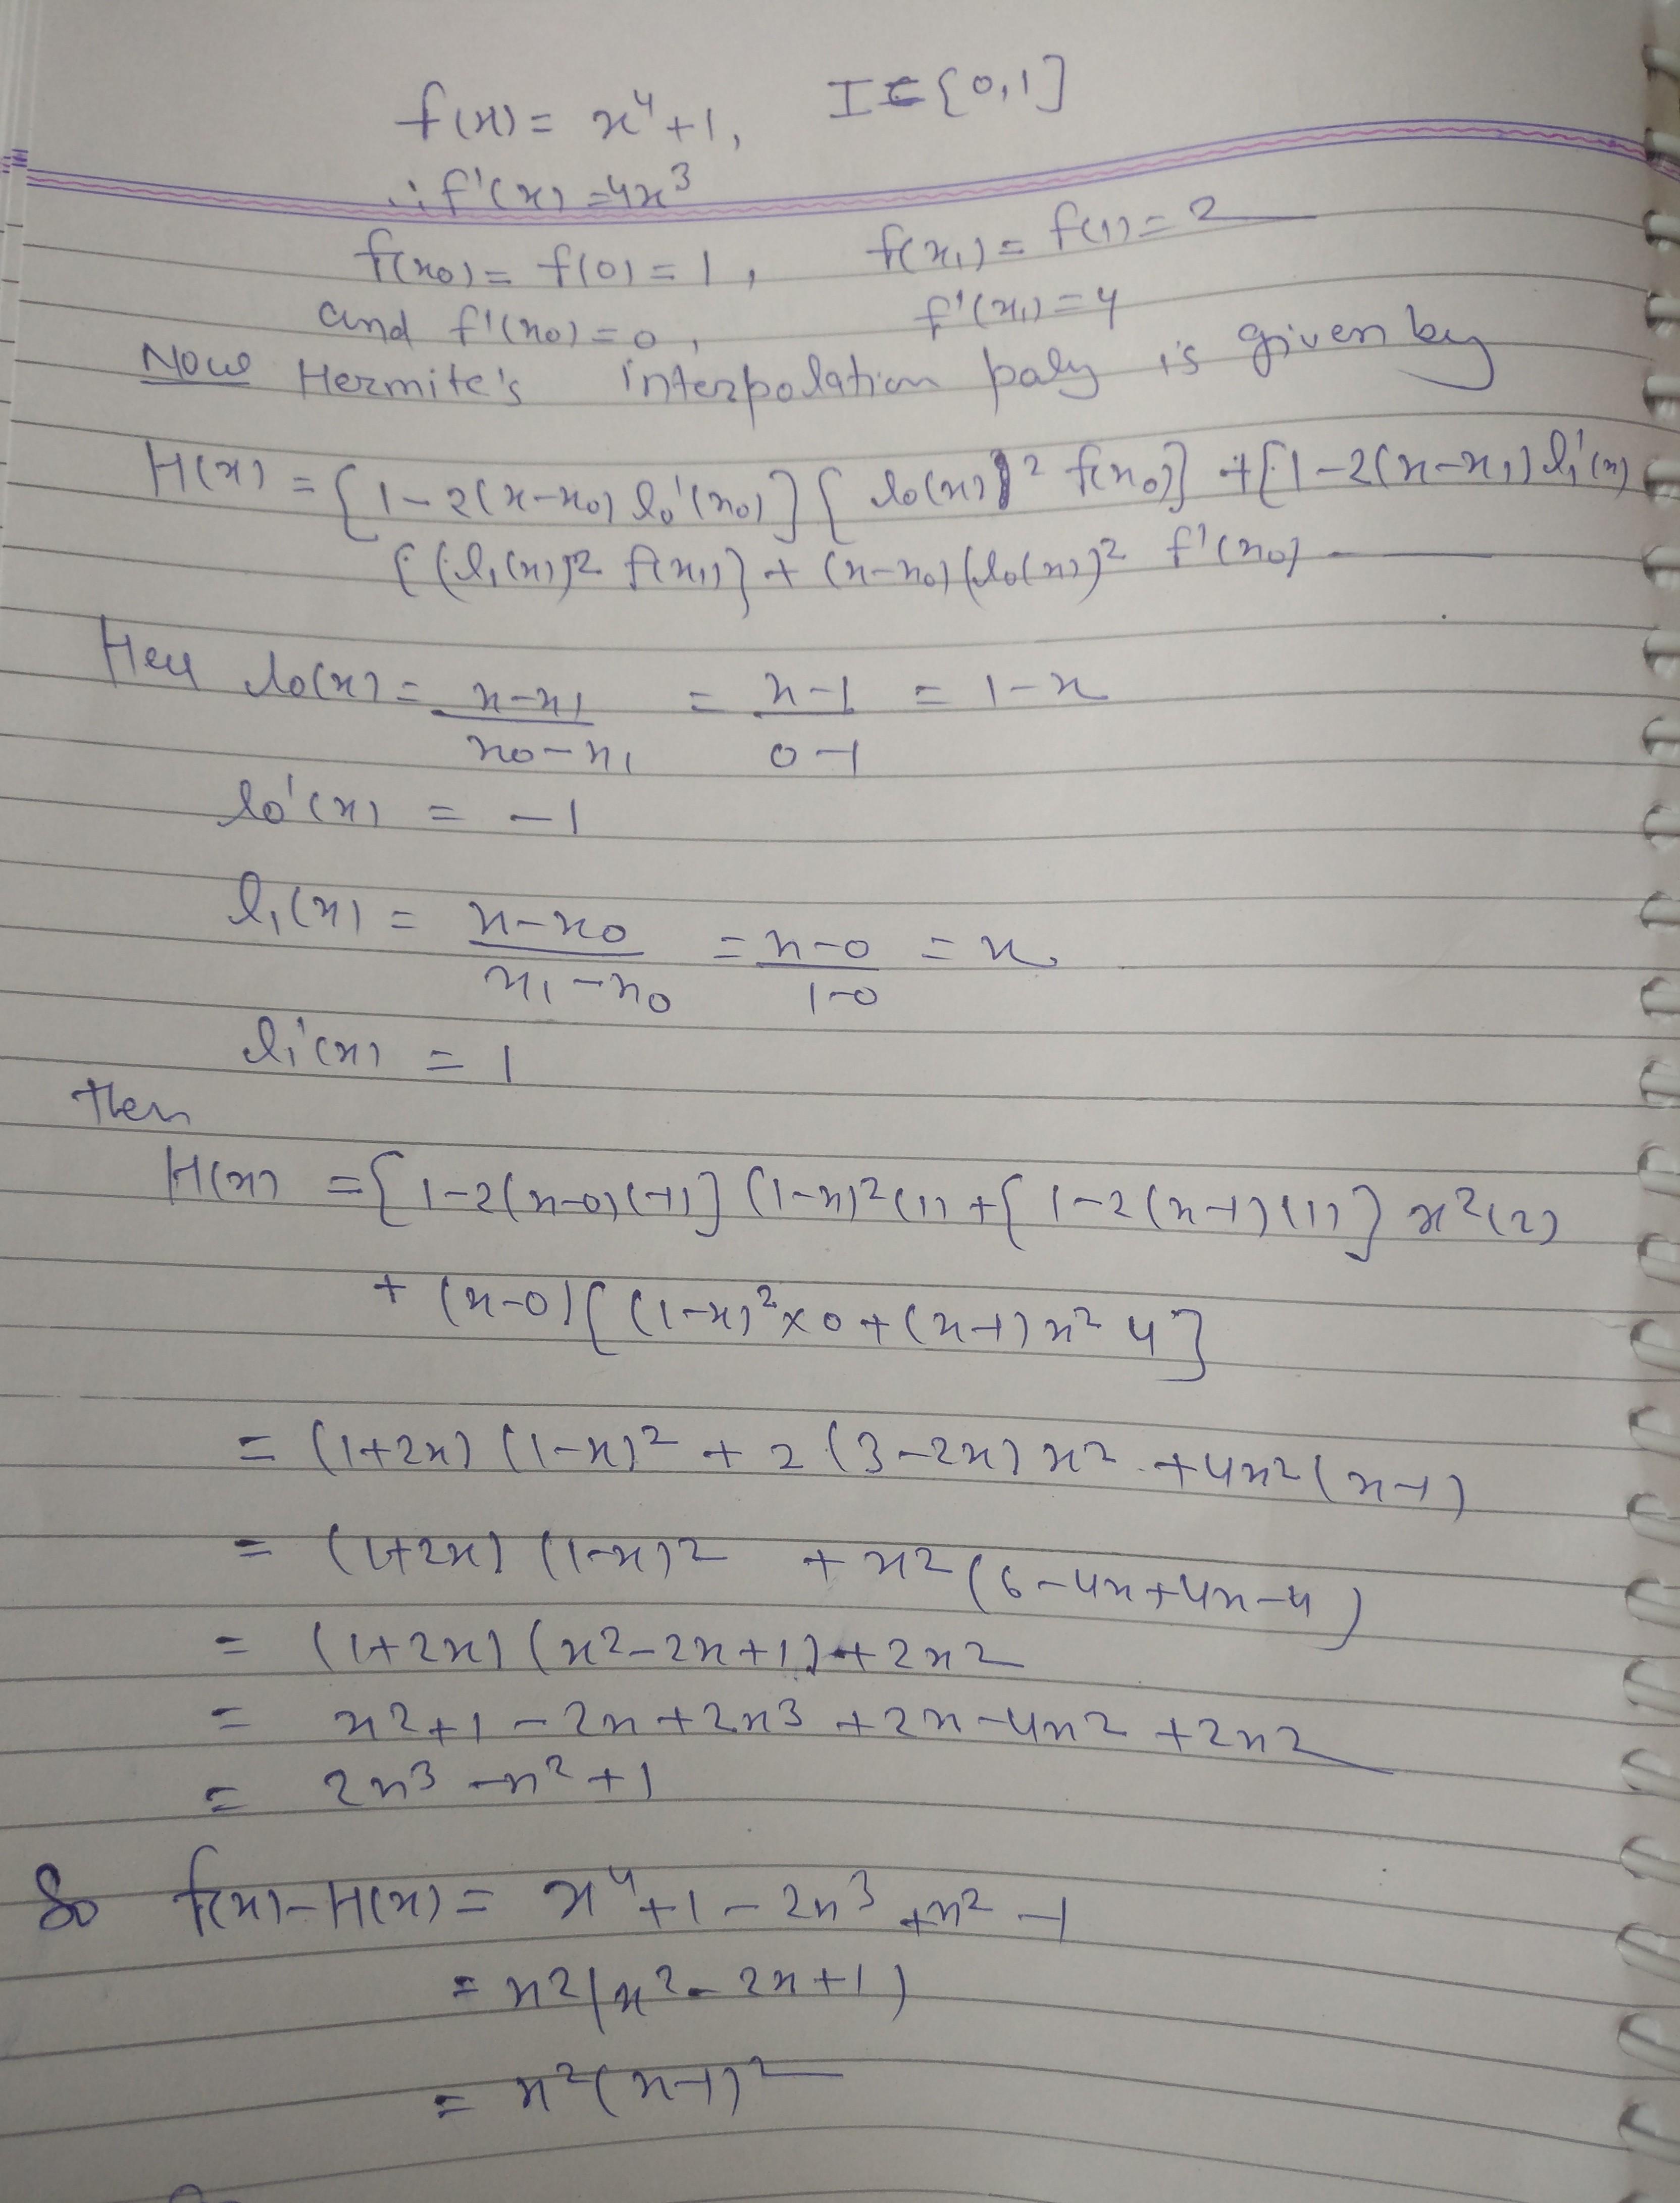 f(x) = x⁴+1, I ∈ [0,1]
∴ f'(x) = 4x³
f(x₀) = f(0) = 1, f(x₁) = f(1) = 2
and f'(x₀) = 0, f'(x₁) = 4
Now Hermite's interpolation paly is given by
H(x) = [1-2(x-x₀) l₀'(x₀)] [l₀(x)]² f(x₀)] + [1-2(x-x₁) l₁'(x)
{(l₁(x))² f(x₁)} + (x-x₀) (l₀(x))² f'(x₀)
Here l₀(x) = x-x₁ / x₀-x₁ = x-1 / 0-1 = 1-x
l₀'(x) = -1
l₁(x) = x-x₀ / x₁-x₀ = x-0 / 1-0 = x
l₁'(x) = 1
then
H(x) = [1-2(x-0)(-1)] (1-x)² (1) + [1-2(x-1)(1)] x²(2)
+ (x-0) [(1-x)² × 0 + (x-1) x² 4]
= (1+2x) (1-x)² + 2 (3-2x) x² + 4x² (x-1)
= (1+2x) (1-x)² + x² (6-4x+4x-4)
= (1+2x) (x²-2x+1) + 2x²
= x²+1-2x+2x³+2x-4x²+2x²
= 2x³-x²+1
So f(x)-H(x) = x⁴+1-2x³+x²-1
= x²(x²-2x+1)
= x²(x-1)²